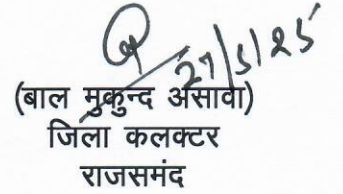 27/5/25
(बाल मुकुन्द असावा)
जिला कलक्टर
राजसमंद